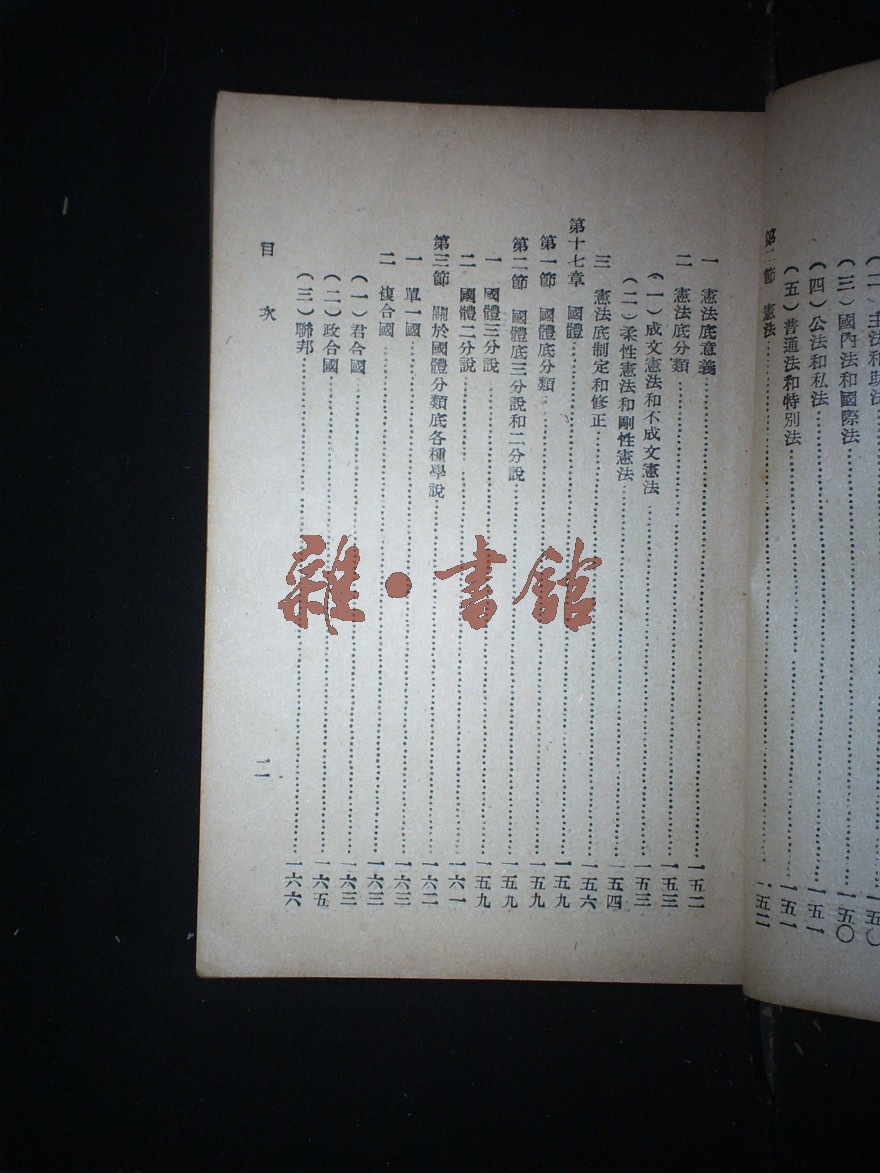 法和助法……一五〇
（三）國內法和國際法……一五〇
（四）公法和私法……一五一
（五）普通法和特別法……一五一
第二節　憲法……一五二
一　憲法底意義……一五二
二　憲法底分類……一五三
（一）成文憲法和不成文憲法……一五三
（二）柔性憲法和剛性憲法……一五四
三　憲法底制定和修正……一五六
第十七章　國體……一五九
第一節　國體底分類……一五九
第二節　國體底三分說和二分說……一五九
一　國體三分說……一五九
二　國體二分說……一六一
第三節　關於國體分類底各種學說……一六二
一　單一國……一六三
二　複合國……一六三
（一）君合國……一六三
（二）政合國……一六五
（三）聯邦……一六六
目次　二
雜·書館